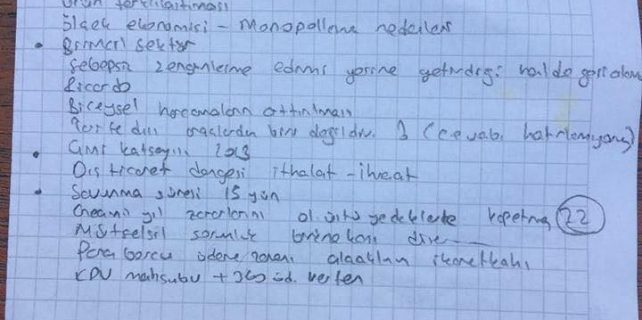 Ürün farklılaştırması
Ölçek ekonomisi - Monopolleme nedenleri
• Birincil sektör
Sebepsiz zenginleşme edimi yerine getirdiği halde geri alan
Ricardo
Bireysel harcamaların arttırılması
Tarife dışı araçlardan biri değildir. ? (cevabı hatırlamıyorum)
• Gini katsayısı 2013
Dış ticaret dengesi ithalat - ihracat
• Savunma süresi 15 gün
yıl zararlarını yedeklerle kapatma 22
Müteselsil sorumluluk
Para borcu ödeme zamanı alacaklının
KDV mahsubu + 360 öd. verilen